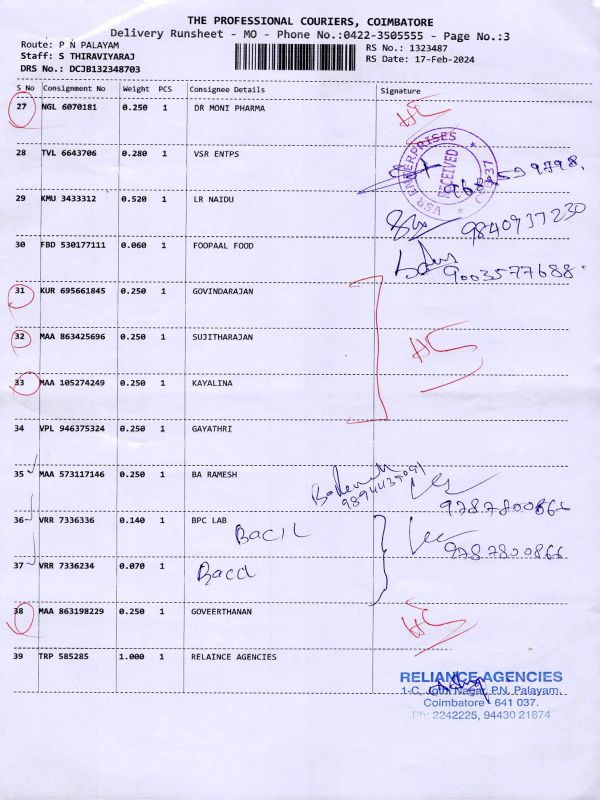 THE PROFESSIONAL COURIERS, COIMBATORE
Delivery Runsheet - MO - Phone No.:0422-3505555 - Page No.:3
Route: P N PALAYAM
Staff: S THIRAVIYARAJ
DRS No.: DCJB132348703
RS No.: 1323487
RS Date: 17-Feb-2024
S No Consignment No Weight PCS Consignee Details Signature
27 NGL 6070181 0.250 1 DR MONI PHARMA
28 TVL 6643706 0.280 1 VSR ENTPS
VSR ENTERPRISES
RECEIVED
29 KMU 3433312 0.520 1 LR NAIDU
9840937230
30 FBD 530177111 0.060 1 FOOPAAL FOOD
9003577688.
31 KUR 695661845 0.250 1 GOVINDARAJAN
32 MAA 863425696 0.250 1 SUJITHARAJAN
33 MAA 105274249 0.250 1 KAYALINA
34 VPL 946375324 0.250 1 GAYATHRI
35 MAA 573117146 0.250 1 BA RAMESH
9787800866
36 VRR 7336336 0.140 1 BPC LAB
BACIL
9787800866
37 VRR 7336234 0.070 1
38 MAA 863198229 0.250 1 GOVEERTHANAN
39 TRP 585285 1.000 1 RELAINCE AGENCIES
RELIANCE AGENCIES
1-C, Jothi Nagar, P.N. Palayam,
Coimbatore - 641 037.
Ph: 2242225, 94430 21874